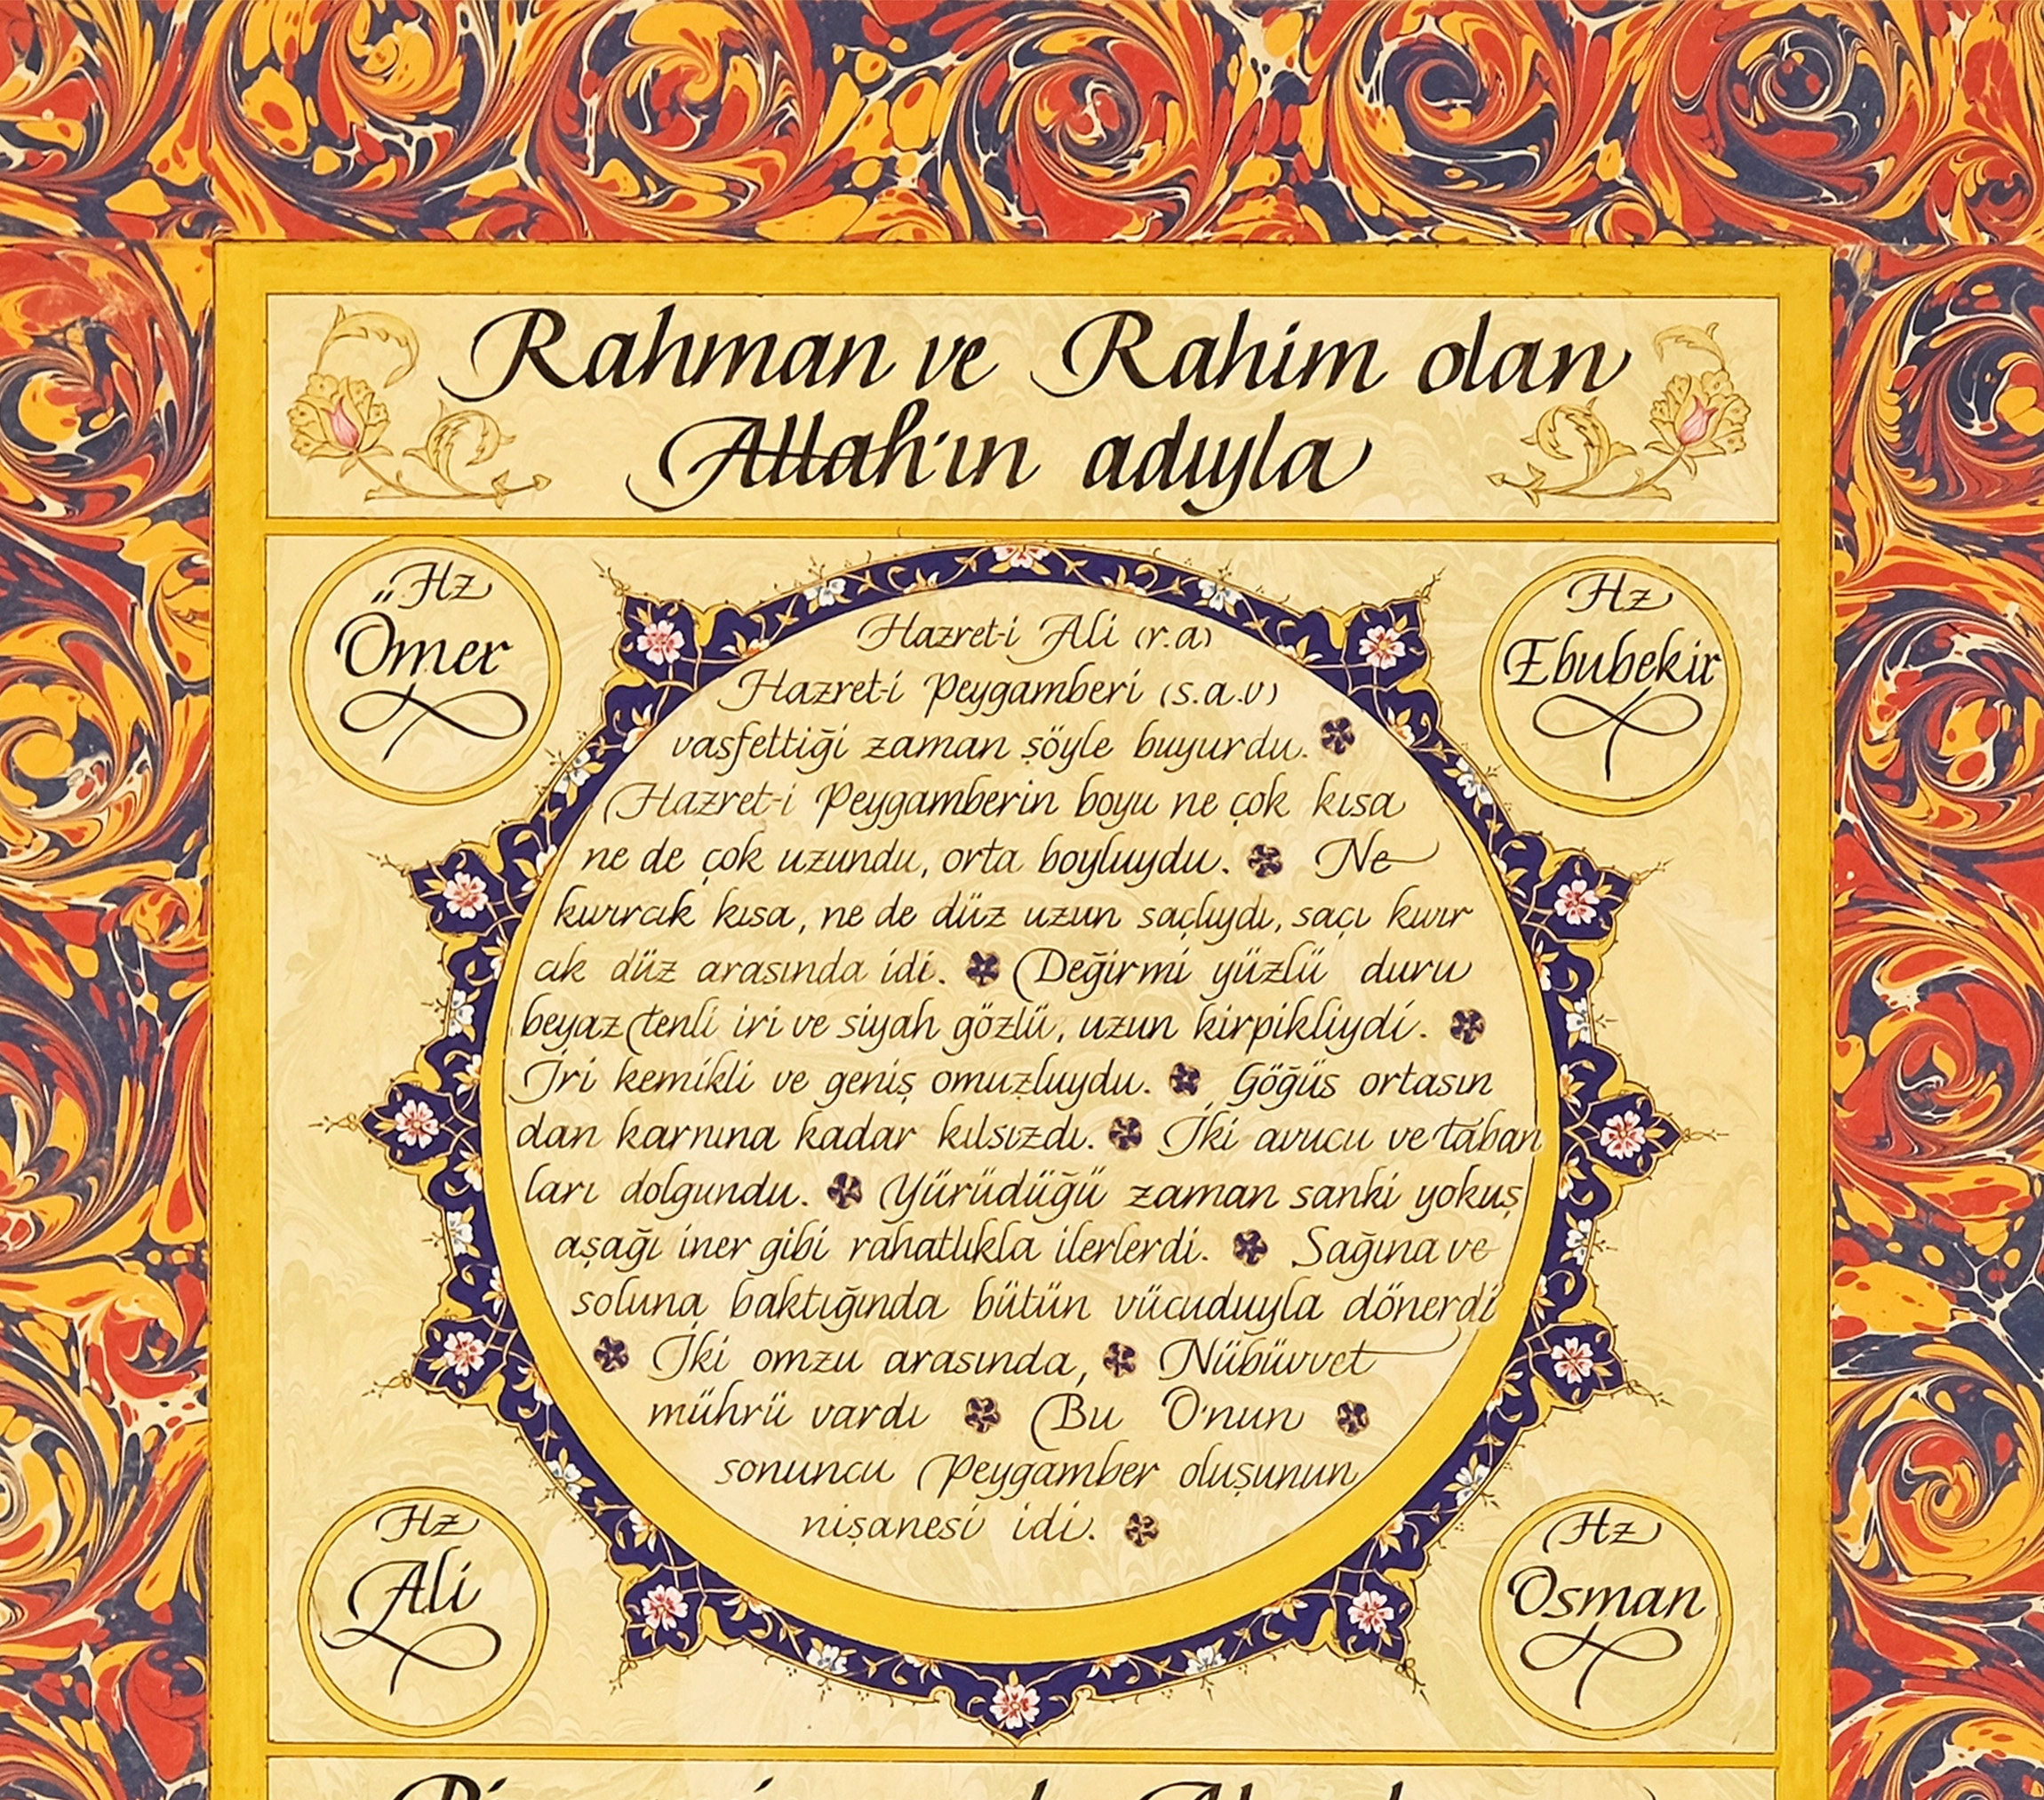 Rahman ve Rahim olan
Allah'ın adıyla
Hz
Ömer
Hz
Ebubekir
Hazret-i Ali (r.a)
Hazret-i Peygamberi (s.a.v)
vasfettiği zaman şöyle buyurdu.
Hazret-i Peygamberin boyu ne çok kısa
ne de çok uzundu, orta boyluydu. Ne
kıvırcık kısa, ne de düz uzun saçlıydı, saçı kıvır
cık düz arasında idi. Değirmi yüzlü duru
beyaz tenli iri ve siyah gözlü, uzun kirpikliydi.
İri kemikli ve geniş omuzluydu. Göğüs ortasın
dan karnına kadar kılsızdı. İki avucu ve taban
ları dolgundu. Yürüdüğü zaman sanki yokuş
aşağı iner gibi rahatlıkla ilerlerdi. Sağına ve
soluna baktığında bütün vücuduyla dönerdi
İki omzu arasında, Nübüvvet
mührü vardı Bu O'nun
sonuncu Peygamber oluşunun
nişanesi idi.
Hz
Ali
Hz
Osman